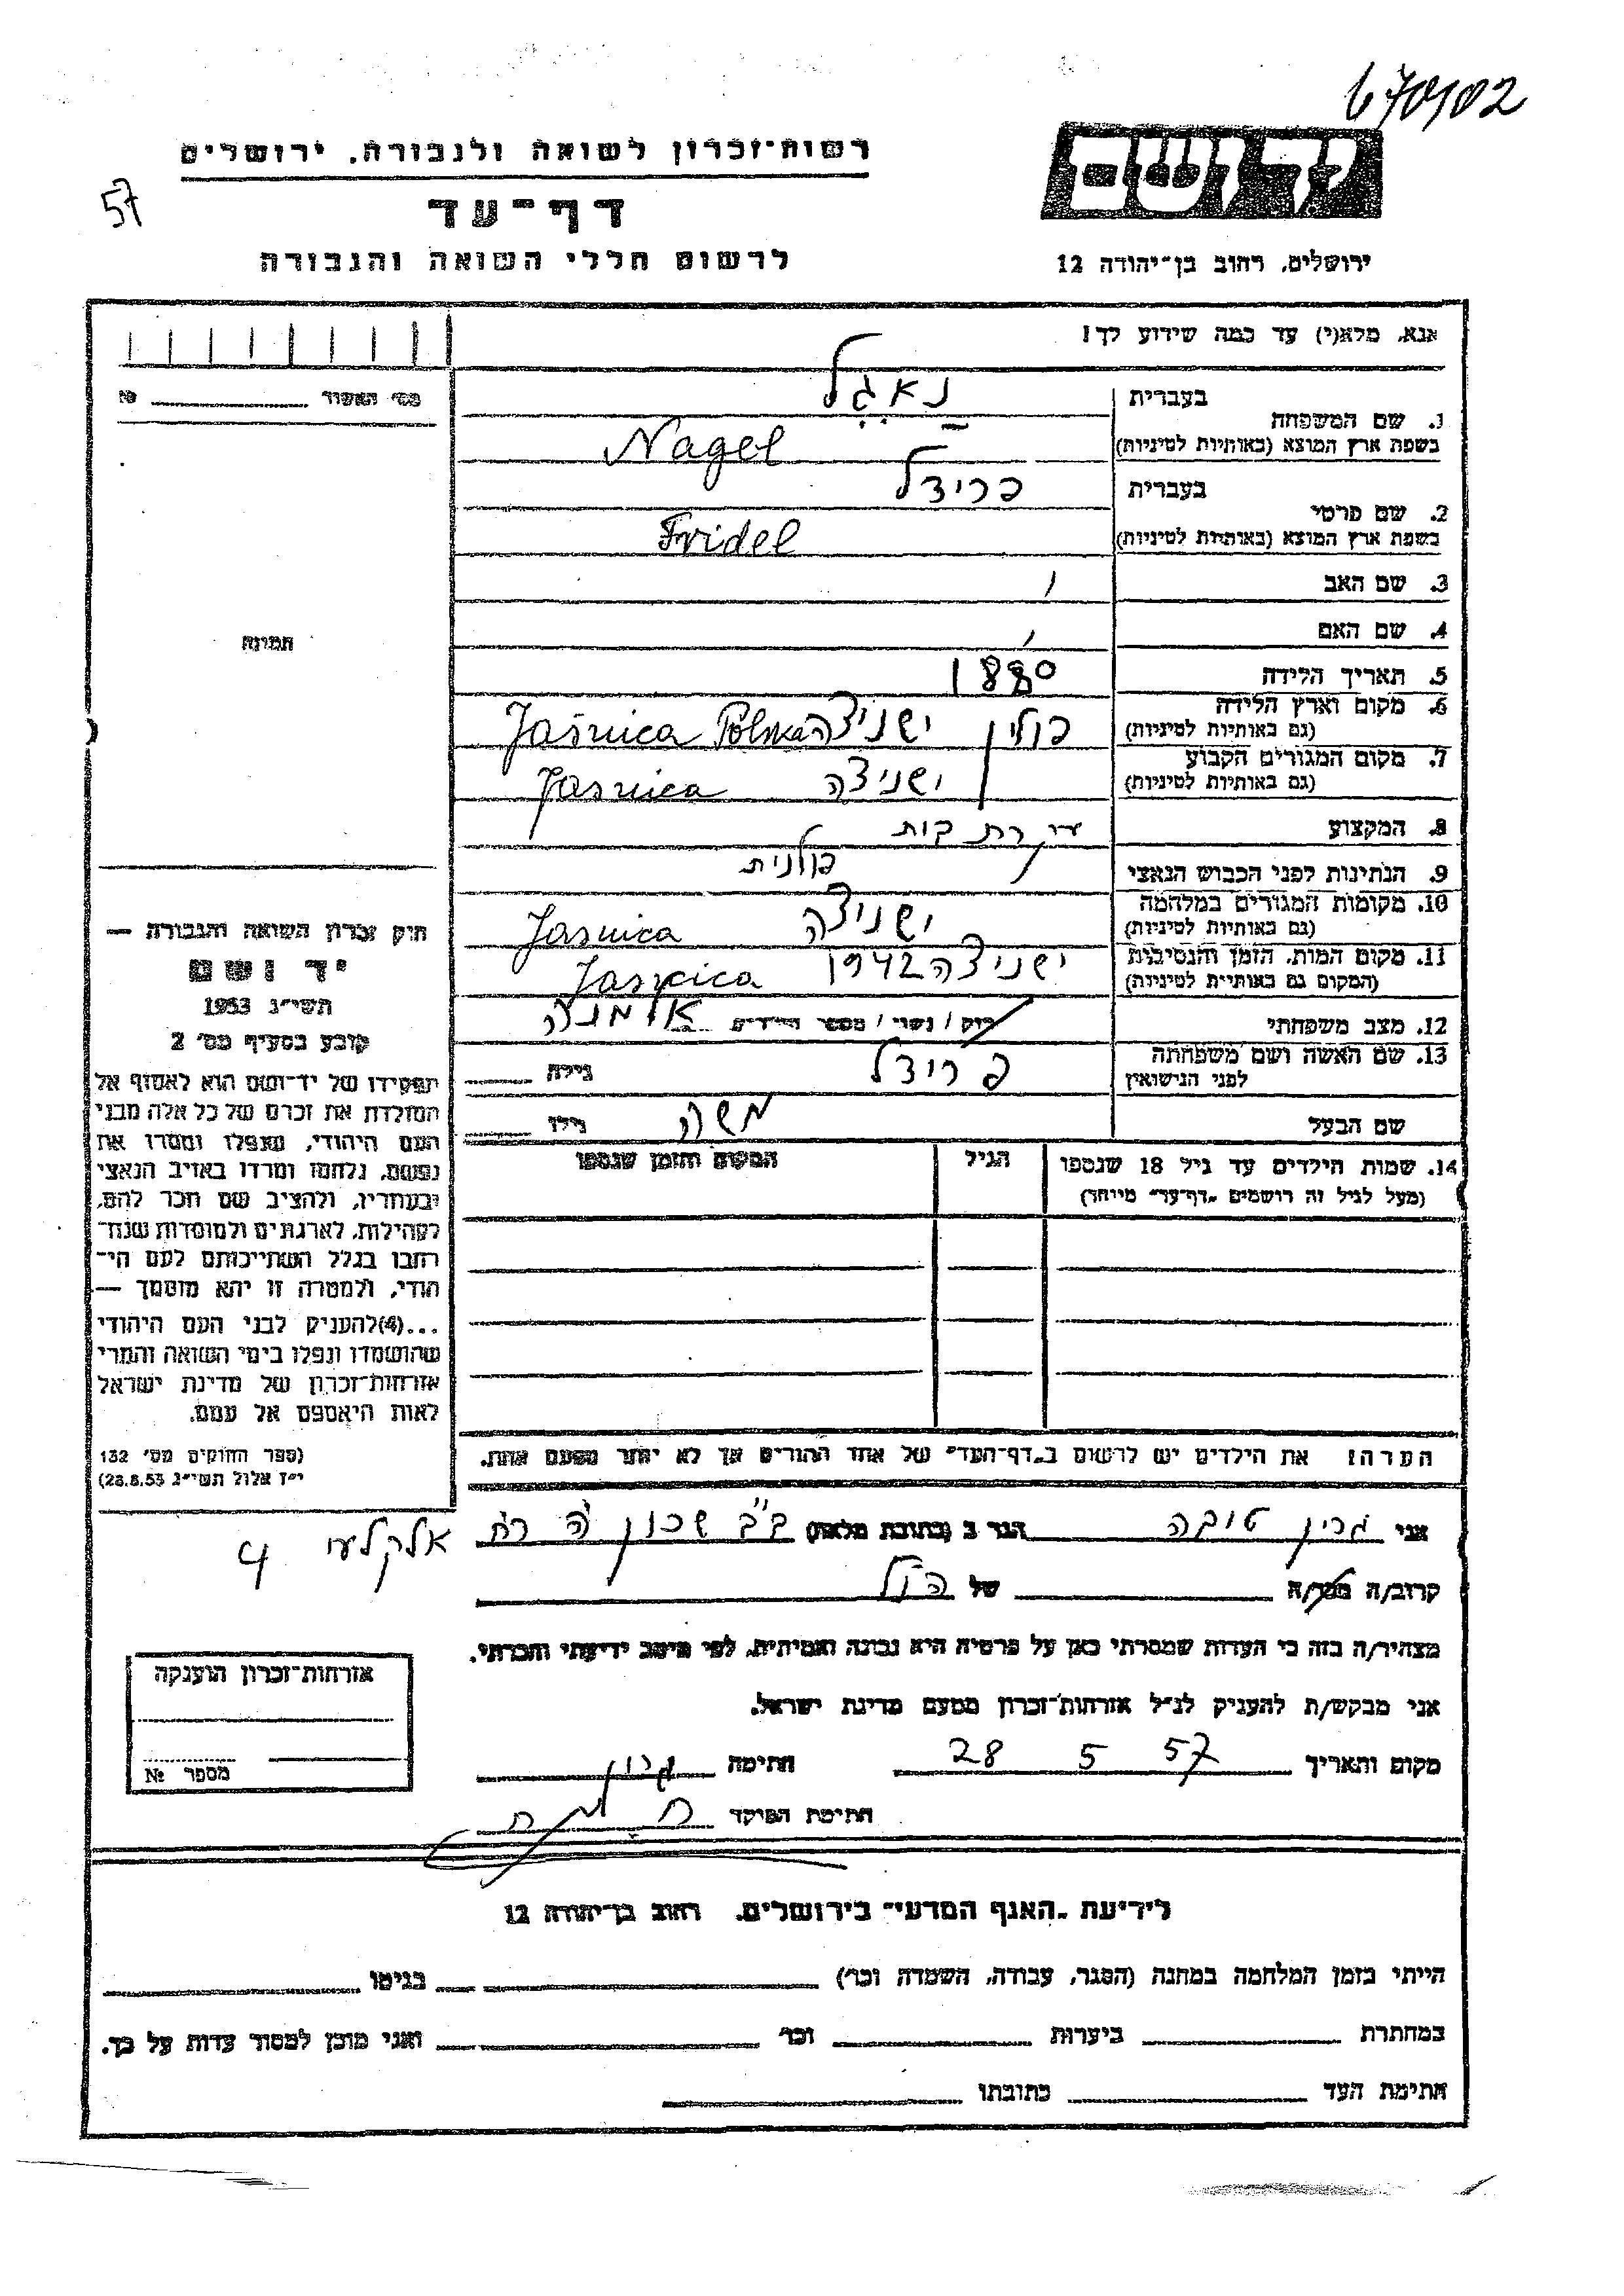 670/02
רשות־זכרון לשואה ולגבורה, ירושלים
57
דף־עד
לרשום חללי השואה והגבורה
ירושלים, רחוב בן־יהודה 12
אנא, מלא(י) עד כמה שידוע לך!
מס׳ האשור №
בעברית נאגל
1. שם המשפחה
בשפת ארץ המוצא (באותיות לטיניות) Nagel
בעברית פרידל
2. שם פרטי
בשפת ארץ המוצא (באותיות לטיניות) Fridel
3. שם האב
4. שם האם
תמונה
5. תאריך הלידה 1880
6. מקום וארץ הלידה פולין ישניצה Jaśnica Polska
(גם באותיות לטיניות)
7. מקום המגורים הקבוע ישניצה Jasnica
(גם באותיות לטיניות)
8. המקצוע
9. הנתינות לפני הכבוש הנאצי פולנית
10. מקומות המגורים במלחמה ישניצה Jasnica
(גם באותיות לטיניות)
11. מקום המות, הזמן והנסיבות ישניצה 1942 Jasnica
(המקום גם באותיות לטיניות)
12. מצב משפחתי רוק / נשוי / מספר הילדים אלמנה
13. שם האשה ושם משפחתה פרידל גילה
לפני הנישואין
שם הבעל משה גילו
14. שמות הילדים עד גיל 18 שנספו הגיל המקום והזמן שנספו
(מעל לגיל זה רושמים „דף־עד״ מיוחד)
חוק זכרון השואה והגבורה —
יד ושם
תשי״ג 1953
קובע בסעיף מס׳ 2
תפקידו של יד־ושם הוא לאסוף אל
המולדת את זכרם של כל אלה מבני
העם היהודי, שנפלו ומסרו את
נפשם, נלחמו ומרדו באויב הנאצי
ובעוזריו, ולהציב שם וזכר להם,
לקהילות, לארגונים ולמוסדות שנח־
רבו בגלל השתייכותם לעם הי־
הודי, ולמטרה זו יהא מוסמך —
...(4)להעניק לבני העם היהודי
שהושמדו ונפלו בימי השואה והמרי
אזרחות־זכרון של מדינת ישראל
לאות היאספם אל עמם.
(ספר החוקים מס׳ 132
י״ז אלול תשי״ג 28.8.53)
הערה: את הילדים יש לרשום ב„דף־העד״ של אחד ההורים אך לא יותר מפעם אחת.
אני גרין טובה הגר ב (כתובת מלאה) ב״ב שכון ה׳ רח׳ אלקלעי 4
קרוב/ה מכר/ה של הנ״ל
מצהיר/ה בזה כי העדות שמסרתי כאן על פרטיה היא נכונה ואמיתית, לפי מיטב ידיעתי והכרתי.
אני מבקש/ת להעניק לנ״ל אזרחות־זכרון מטעם מדינת ישראל.
מקום ותאריך 28 5 57 חתימה גרין
חתימת הפוקד
אזרחות־זכרון הוענקה
מספר №
לידיעת „האגף המדעי״ בירושלים, רחוב בן־יהודה 12
הייתי בזמן המלחמה במחנה (הסגר, עבודה, השמדה וכו׳) בגיטו
במחתרת ביערות וכו׳ ואני מוכן למסור עדות על כך.
חתימת העד כתובתו